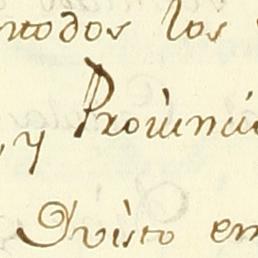 ntodos los
, y Prouinci
Qvisto en